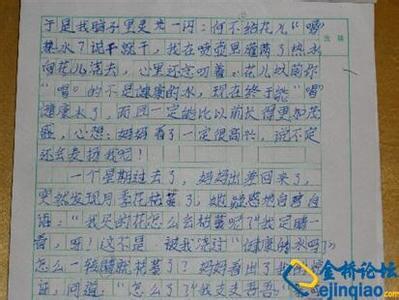 于是我脑子里灵光一闪：何不给花儿“喝”
热水？说干就干，我在喷壶里灌满了热水
向花儿浇去，心里还念叨着：花儿以前你
“喝”的不是健康的水，现在终于能“喝”
健康水了，而且一定的比以前长得更加茂
盛，心想：妈妈看了一定很高兴，说不定
还会表扬我呢！
一个星期过去了，妈妈出差回来了，
突然发现月季花枯萎了，她疑惑地自言自
语：“我买的花怎么会枯萎呢？”我定睛一
看，呀！这不是被我浇过“健康的水吗”
怎么一转眼就枯萎了？妈妈看出了我的
证，问道：“怎么了？”我支支吾吾
金桥论坛
ejinqiao.com